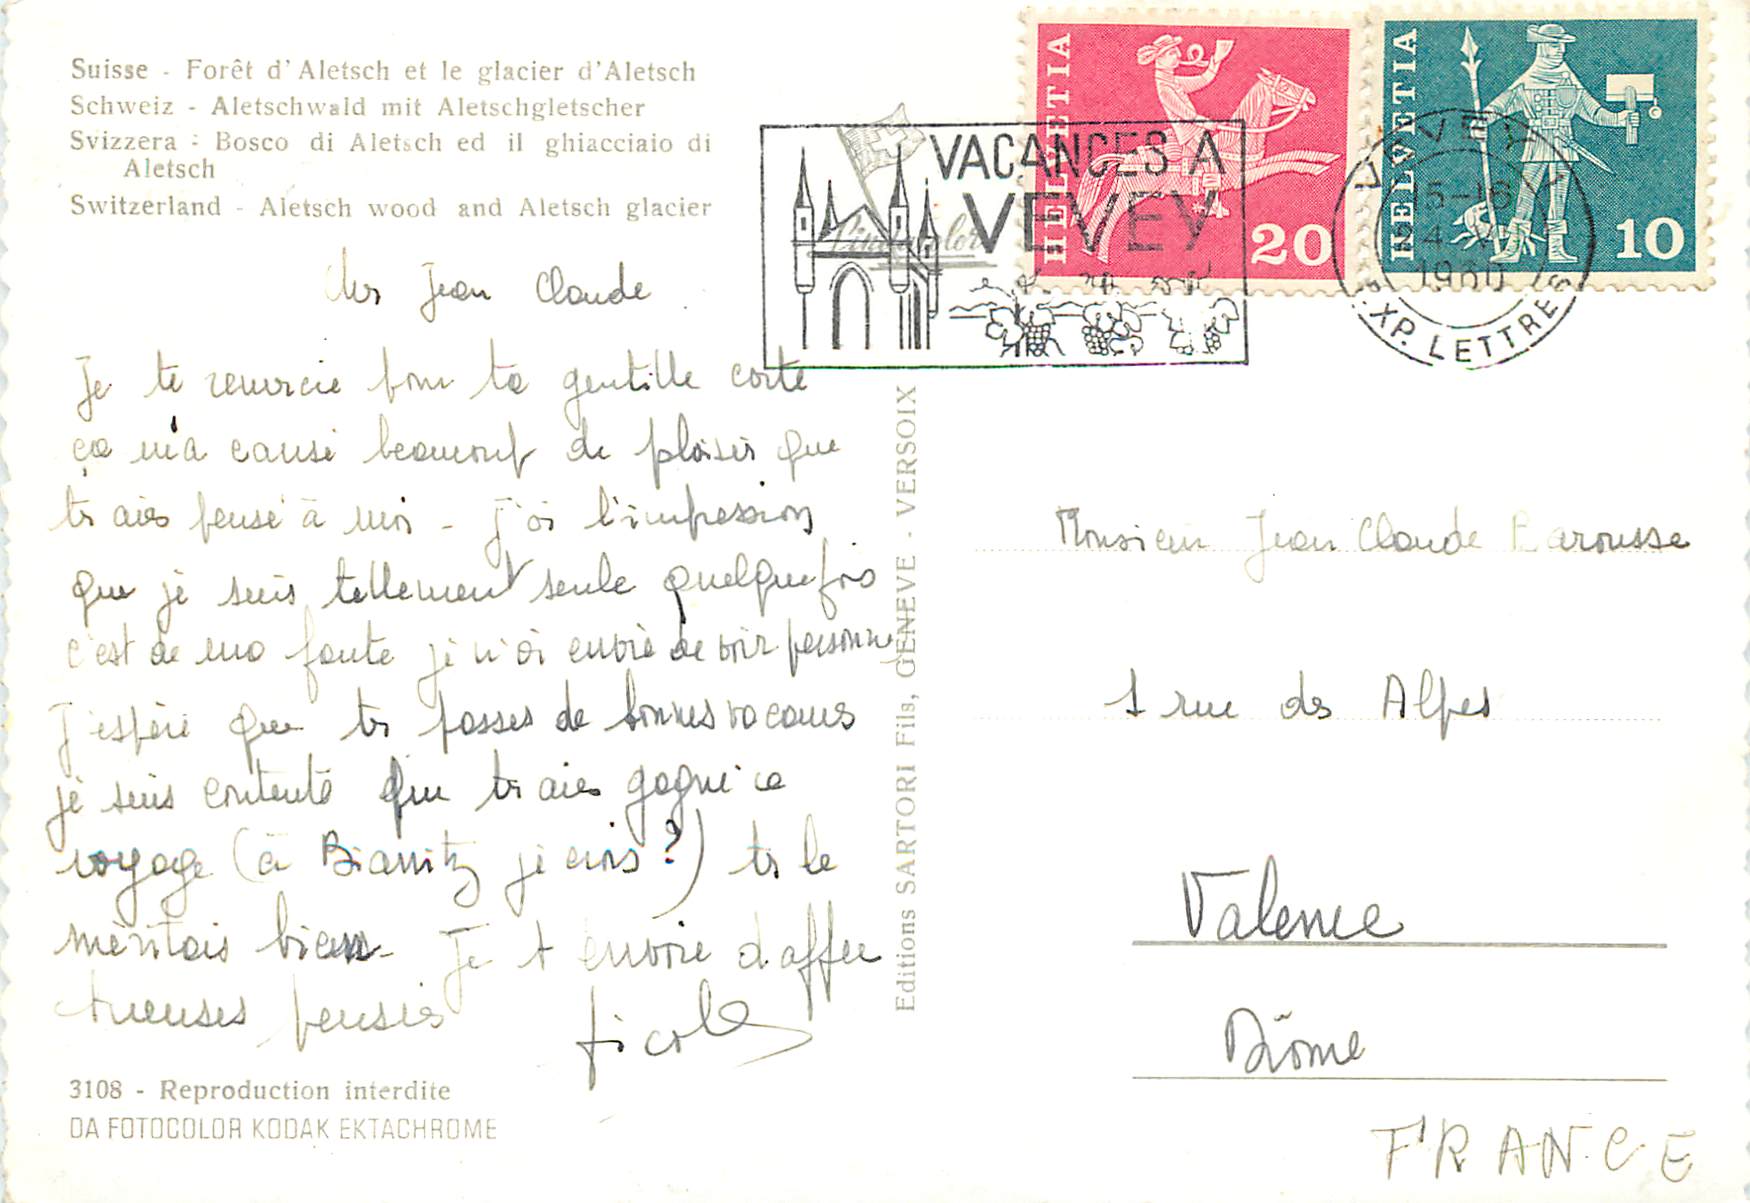 Suisse - Forêt d'Aletsch et le glacier d'Aletsch
Schweiz - Aletschwald mit Aletschgletscher
Svizzera - Bosco di Aletsch ed il ghiacciaio di
Aletsch
Switzerland - Aletsch wood and Aletsch glacier
Cher Jean Claude
Je te remercie pour ta gentille carte
ça m'a causé beaucoup de plaisir que
tu aies pensé à moi - j'ai l'impression
que je suis tellement seule quelquefois
c'est de ma faute je n'ai envie de voir personne
J'espère que tu passes de bonnes vacances
je suis contente que tu aies gagné ce
voyage (à Biarritz je crois ?) tu le
méritais bien - Je t'envoie d'affec
tueuses pensées Nicole
3108 - Reproduction interdite
DA FOTOCOLOR KODAK EKTACHROME
Editions SARTORI Fils, GENEVE - VERSOIX
VACANCES A
VEVEY
HELVETIA
20
HELVETIA
10
VEVEY 1
15-16
1960
EXP. LETTRES
Monsieur Jean Claude Barousse
1 rue des Alpes
Valence
Drôme
FRANCE